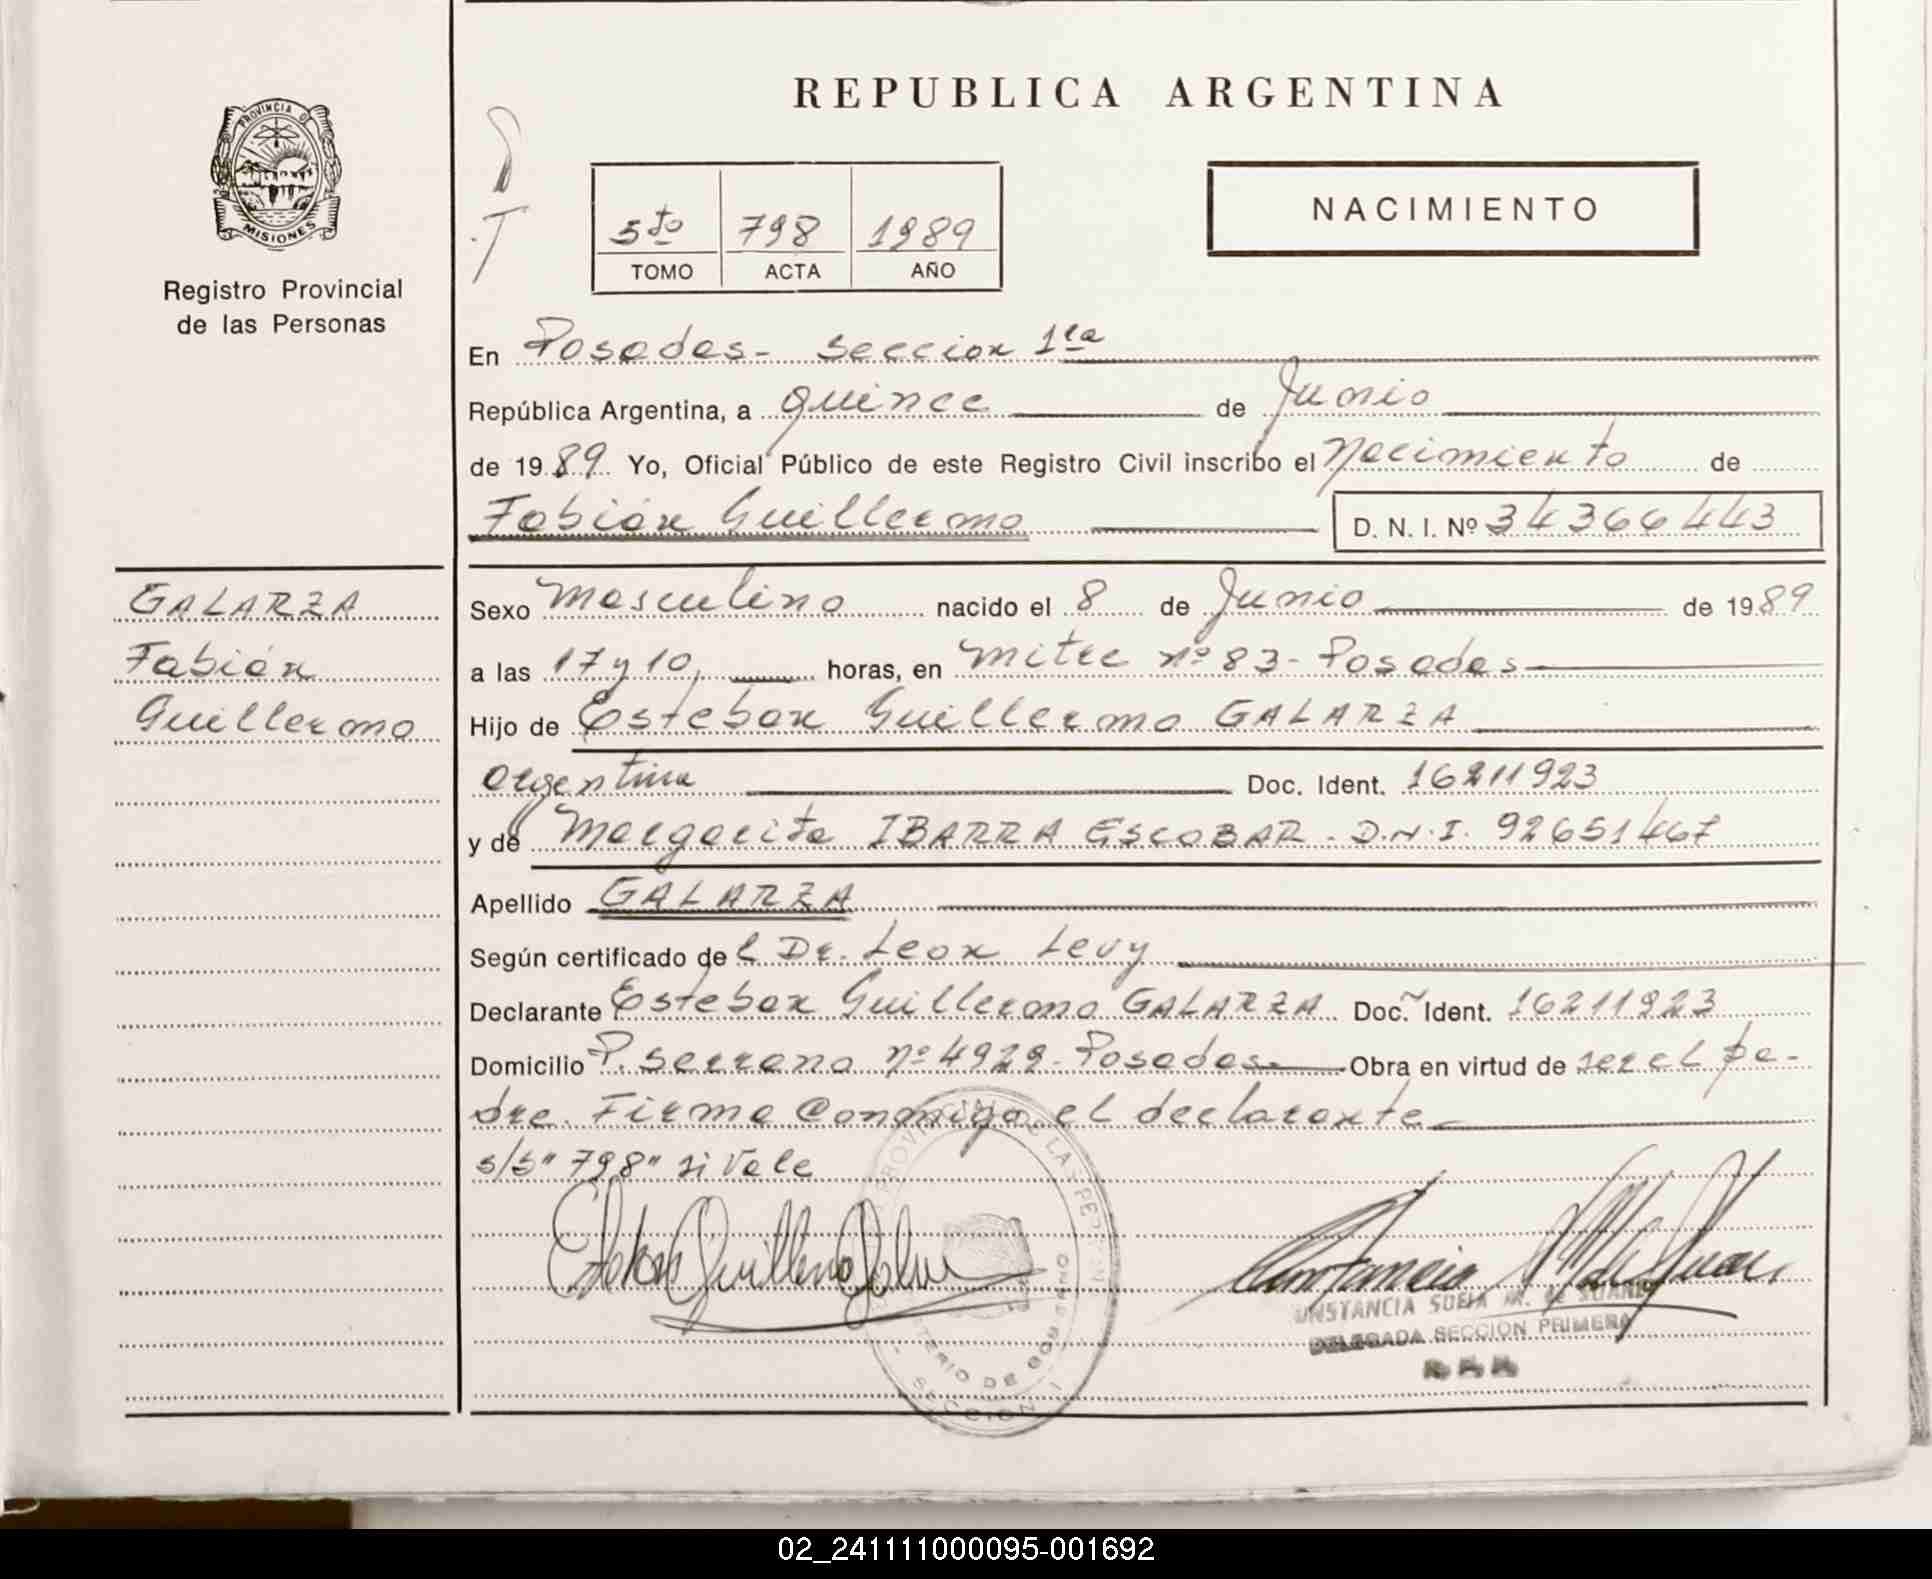 PROVINCIA DE
MISIONES
Registro Provincial
de las Personas
REPUBLICA ARGENTINA
NACIMIENTO
5to 798 1989
TOMO ACTA AÑO
En Posadas - Seccion 1ra
República Argentina, a quince de Junio
de 1989. Yo, Oficial Público de este Registro Civil inscribo el Nacimiento de
Fabián Guillermo D. N. I. Nº 34366443
GALARZA
Fabián
Guillermo
Sexo Masculino nacido el 8 de Junio de 1989
a las 17 y 10, horas, en Mitre nº 83 - Posadas
Hijo de Esteban Guillermo GALARZA
argentina Doc. Ident. 16211923
y de Margarita IBARRA ESCOBAR - D.N.I. 92651467
Apellido GALARZA
Según certificado del Dr. Leon Levy
Declarante Esteban Guillermo GALARZA Doc. Ident. 16211923
Domicilio P. Serrano nº 4929 - Posadas Obra en virtud de ser el pa-
dre. Firma conmigo el declarante
s/b "798" si vale
DELEGADA SECCION PRIMERA
02_241111000095-001692